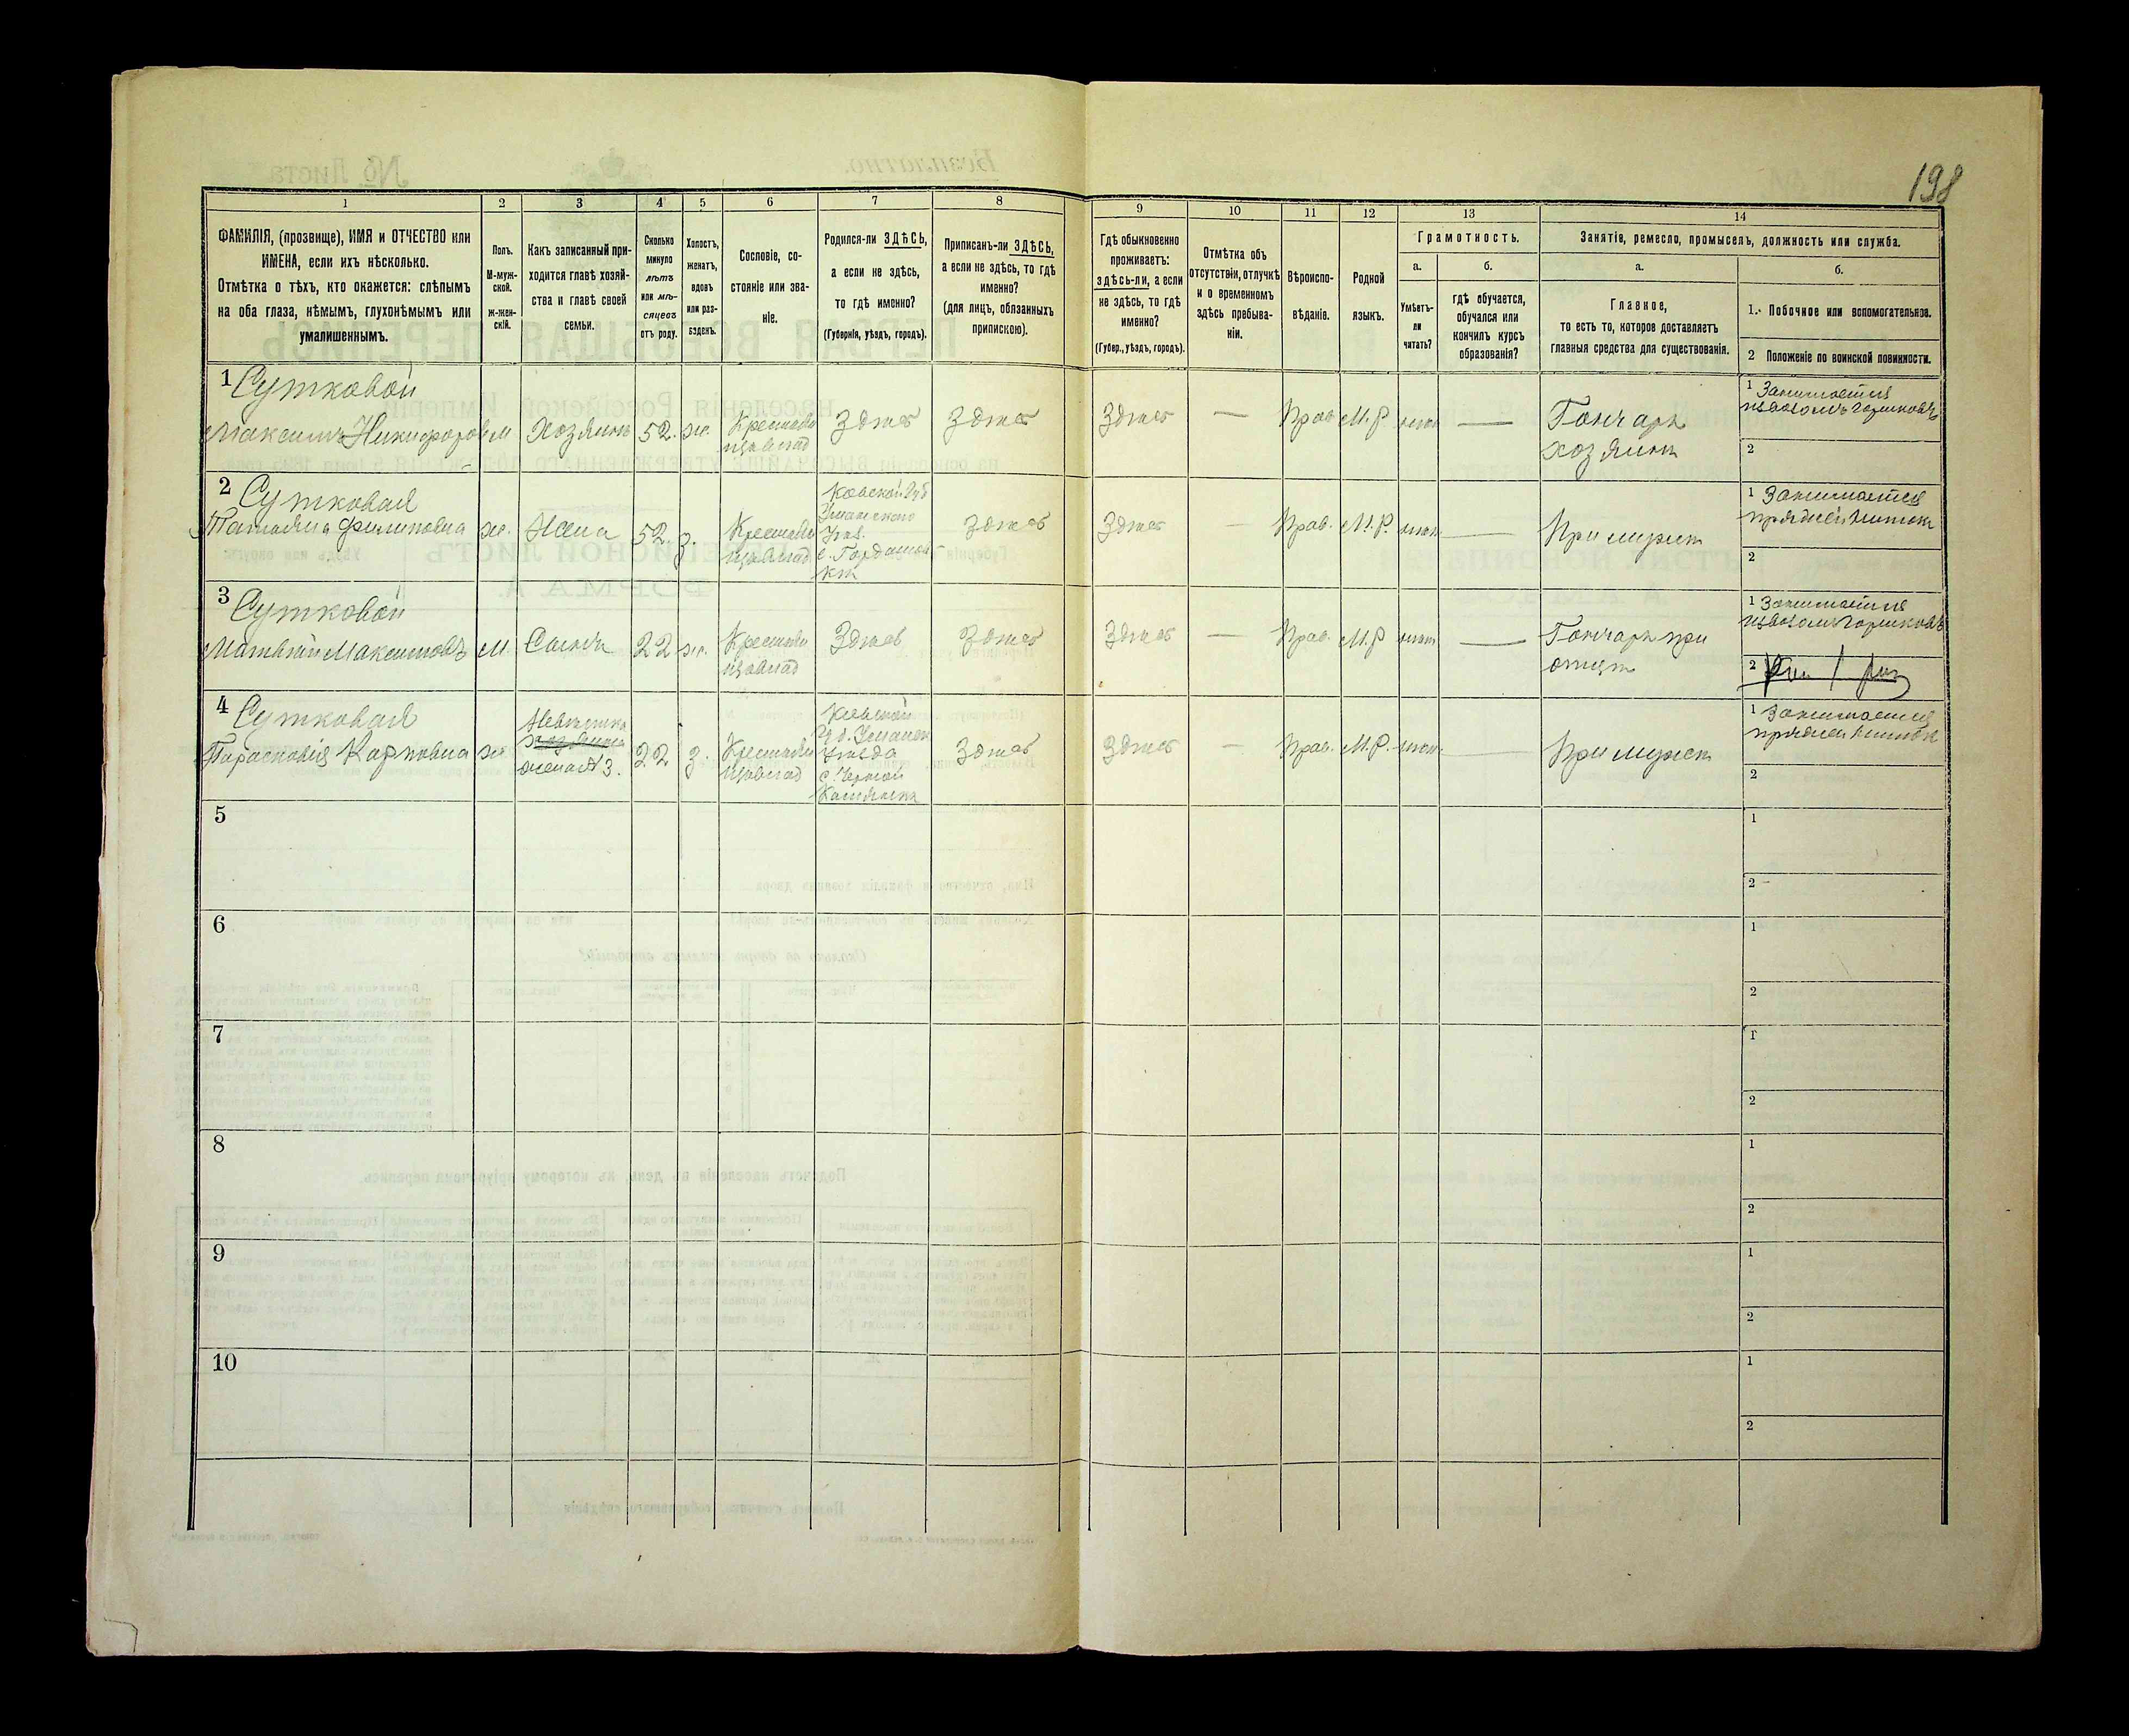 198
1
2
3
4
5
6
7
8
9
10
11
12
13
14
ФАМИЛІЯ, (прозвище), ИМЯ и ОТЧЕСТВО или
ИМЕНА, если ихъ нѣсколько.
Отмѣтка о тѣхъ, кто окажется: слѣпымъ
на оба глаза, нѣмымъ, глухонѣмымъ или
умалишеннымъ.
Полъ.
М-муж-
ской.
Ж-жен-
скій.
Какъ записанный при-
ходится главѣ хозяй-
ства и главѣ своей
семьи.
Сколько
минуло
лѣтъ
или мѣ-
сяцевъ
отъ роду.
Холостъ,
женатъ,
вдовъ
или раз-
веденъ.
Сословіе, со-
стояніе или зва-
ніе.
Родился-ли ЗДѢСЬ,
а если не здѣсь,
то гдѣ именно?
(Губернія, уѣздъ, городъ).
Приписанъ-ли ЗДѢСЬ,
а если не здѣсь, то гдѣ
именно?
(для лицъ, обязанныхъ
припискою).
Гдѣ обыкновенно
проживаетъ:
здѣсь-ли, а если
не здѣсь, то гдѣ
именно?
(Губер., уѣздъ, городъ).
Отмѣтка объ
отсутствіи, отлучкѣ
и о временномъ
здѣсь пребыва-
ніи.
Вѣроиспо-
вѣданіе.
Родной
языкъ.
Грамотность.
а.
Умѣетъ-
ли
читать?
б.
гдѣ обучается,
обучался или
кончилъ курсъ
образованія?
Занятіе, ремесло, промыселъ, должность или служба.
а.
Главное,
то есть то, которое доставляетъ
главныя средства для существованія.
б.
1. Побочное или вспомогательное.
2 Положеніе по воинской повинности.
1 Сутковой
Максимъ Никифоровъ
м
Хозяинъ
52.
ж.
Крестьян
изъ влад
Здѣсь
Здѣсь
Здѣсь
—
Прав
М.Р.
нѣтъ
—
Гончаръ
хозяинъ
1 Занимается
извозомъ горшковъ
2
2 Сутковая
Татьяна Филиповна
ж.
Жена
52.
з.
Крестьян
изъ влад.
Кіевской Губ
Уманского
Уѣз.
с. Гордашов-
кѣ
Здѣсь
Здѣсь
—
Прав.
М.Р.
нѣтъ.
—
При мужѣ
1 Занимается
пряжей нитокъ
2
3 Сутковой
Матвѣй Максимовъ
м.
Сынъ
22
ж.
Крестьян
изъ влад
Здѣсь
Здѣсь
Здѣсь
—
Прав.
М.Р
нѣтъ
—
Гончаръ при
отцѣ
1 Занимается
извозомъ горшковъ
2
4 Сутковая
Парасковія Карповна
ж.
Невѣстка
хозяина
жена № 3.
22
з.
Крестьян
изъ влад
Кіевской
Губ. Уманск
Уѣзда
с. Черной
Камянки
Здѣсь
Здѣсь
—
Прав.
М.Р.
нѣтъ.
—
При мужѣ
1 Занимается
пряжей нитокъ
2
5
1
2
6
1
2
7
1
2
8
1
2
9
1
2
10
1
2